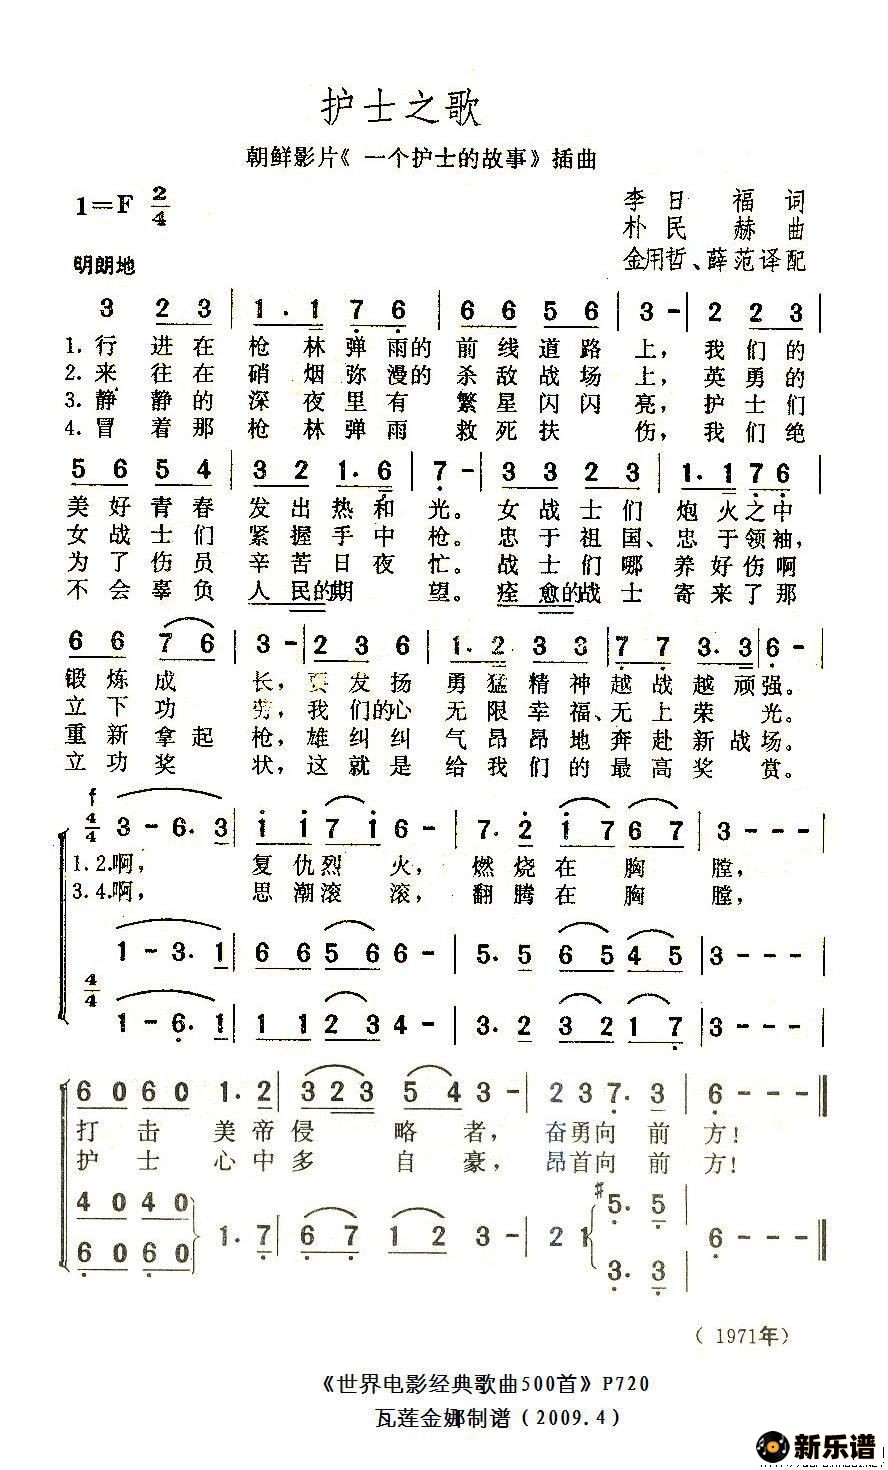 护士之歌
朝鲜影片《一个护士的故事》插曲
1=F 2/4
李日福词
朴民赫曲
金用哲、薛范译配
明朗地
3 2 3 | 1 . 1 7 6 | 6 6 5 6 | 3 - | 2 2 3 |
1.行 进在 枪 林弹雨的 前线道路 上, 我们的
2.来 往在 硝 烟弥漫的 杀敌战场 上, 英勇的
3.静 静的 深 夜里有 繁星闪闪 亮, 护士们
4.冒 着那 枪 林弹雨 救死扶 伤, 我们绝
5 6 5 4 | 3 2 1. 6 | 7 - | 3 3 2 3 | 1. 1 7 6 |
美好青春 发出热和 光。 女战士们 炮火之中
女战士们 紧握手中 枪。 忠于祖国、忠于领袖,
为了伤员 辛苦日夜 忙。 战士们哪 养好伤啊
不会辜负 人民的期 望。 痊愈的战士 寄来了那
6 6 7 6 | 3 - | 2 3 6 | 1. 2 3 3 | 7 7 3. 3 | 6 - |
锻炼成 长, 要发扬 勇猛精神 越战越顽强。
立下功 劳, 我们的心 无限幸福、无上荣 光。
重新拿起 枪, 雄纠纠 气昂昂地 奔赴新战场。
立功奖 状, 这就是 给我们的 最高奖 赏。
f
4/4 3 - 6. 3 | 1 1 7 1 6 - | 7. 2 1 7 6 7 | 3 - - - |
1.2.啊, 复仇烈 火, 燃烧在 胸 膛,
3.4.啊, 思潮滚 滚, 翻腾在 胸 膛,
1 - 3. 1 | 6 6 5 6 6 - | 5. 5 6 5 4 5 | 3 - - - |
4/4
1 - 6. 1 | 1 1 2 3 4 - | 3. 2 3 2 1 7 | 3 - - - |
6 0 6 0 1. 2 | 3 2 3 5 4 3 - | 2 3 7. 3 | 6 - - ‖
打 击 美帝侵 略 者, 奋勇向 前 方!
护 士 心中多 自 豪, 昂首向 前 方!
4 0 4 0 #5. 5
1. 7 | 6 7 1 2 3 - | 2 1 6 - - ‖
6 0 6 0 3. 3
(1971年)
《世界电影经典歌曲500首》P720
瓦莲金娜制谱(2009.4)
新乐谱